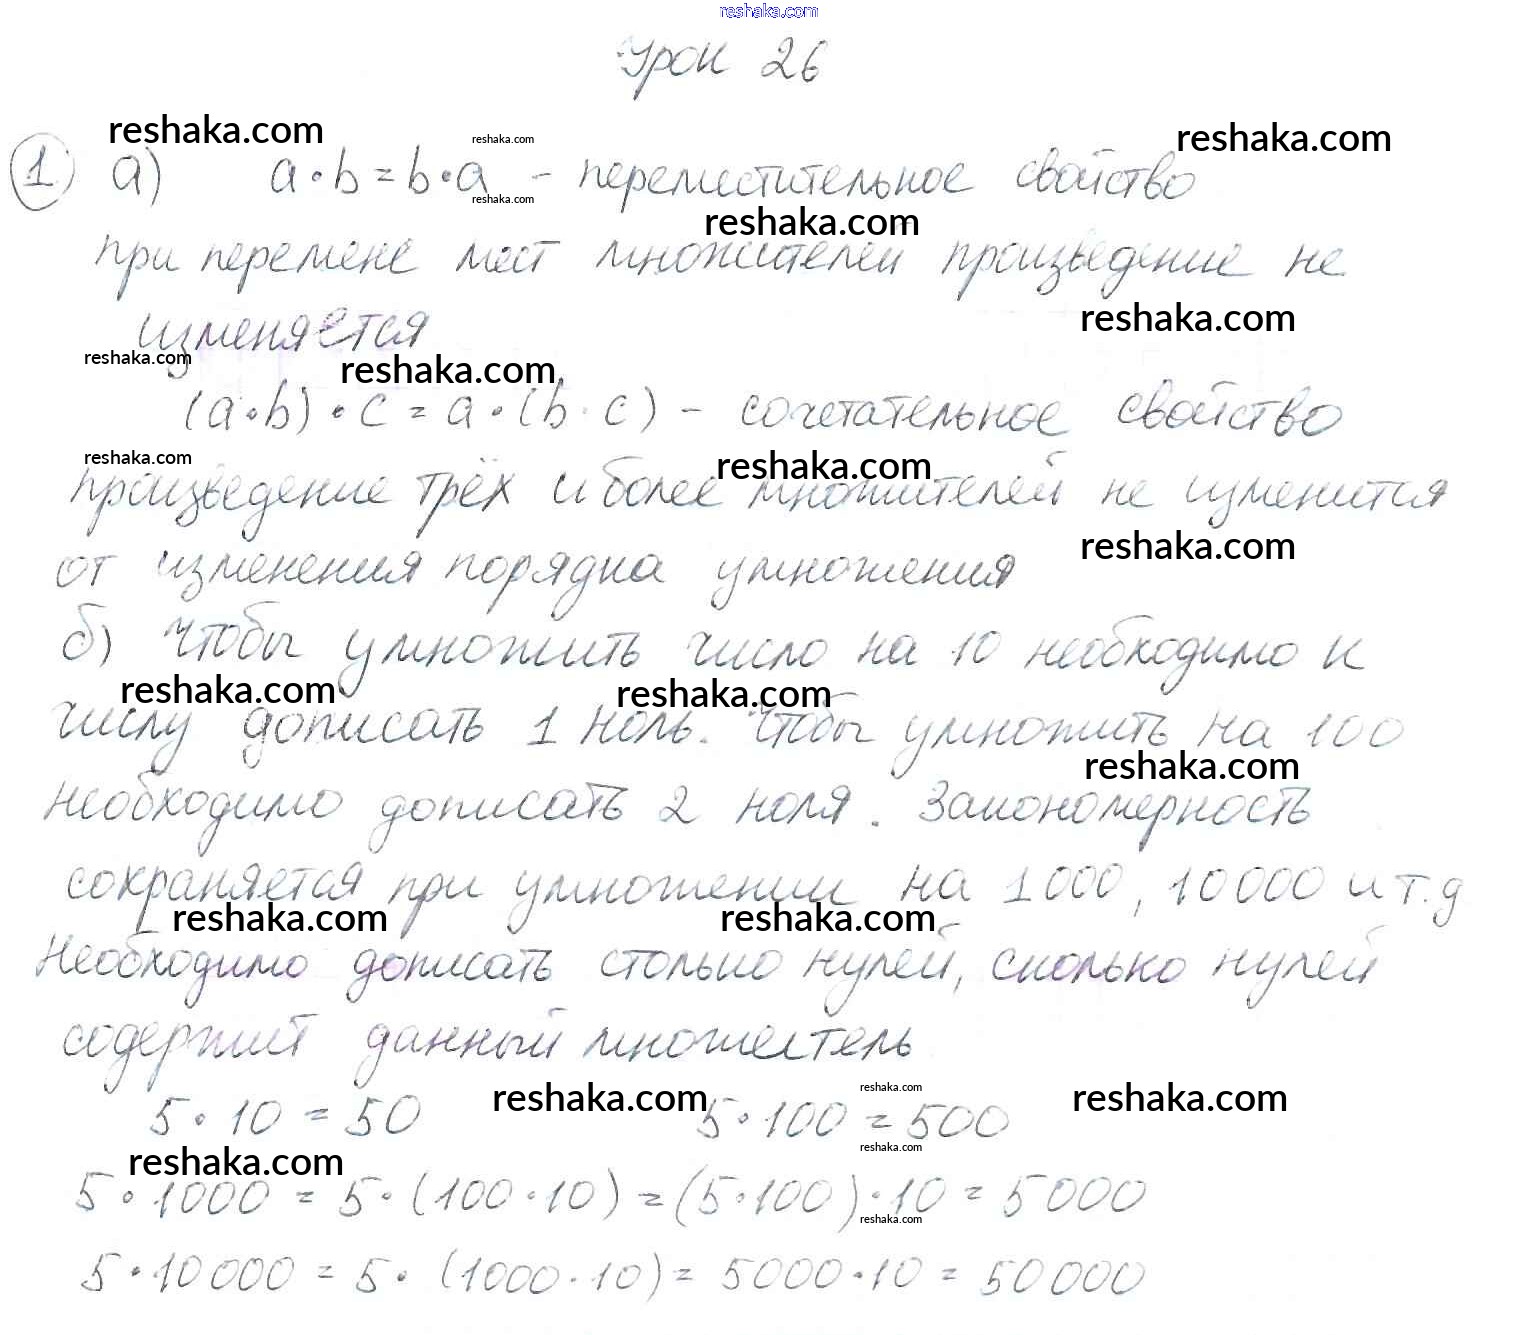 reshaka.com
Урок 26
reshaka.com reshaka.com reshaka.com
1 а) a·b=b·a - переместительное свойство
reshaka.com
reshaka.com
при перемене мест множителей произведение не
reshaka.com
изменяется
reshaka.com reshaka.com
(a·b)·c=a·(b·c) - сочетательное свойство
reshaka.com reshaka.com
произведение трёх и более множителей не изменится
reshaka.com
от изменения порядка умножения
б) Чтобы умножить число на 10 необходимо к
reshaka.com reshaka.com
числу дописать 1 ноль. Чтобы умножить на 100
reshaka.com
необходимо дописать 2 ноля. Закономерность
сохраняется при умножении на 1000, 10000 и т.д
reshaka.com reshaka.com
Необходимо дописать столько нулей, сколько нулей
содержит данный множитель
reshaka.com reshaka.com reshaka.com
5·10=50 5·100=500
reshaka.com reshaka.com
5·1000=5·(100·10)=(5·100)·10=5000
reshaka.com
5·10000=5·(1000·10)=5000·10=50000